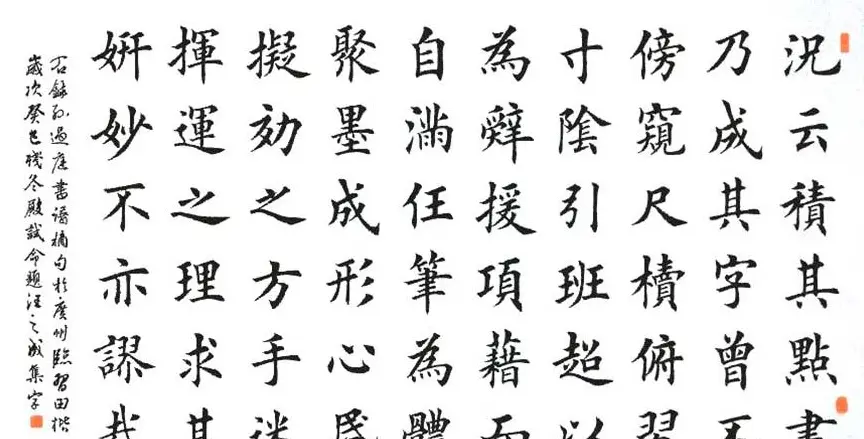 況云積其點畫
乃成其字曾不
傍窺尺牘俯習
寸陰引班超以
為辭援項藉而
自滿任筆為體
聚墨成形心昬
擬効之方手迷
揮運之理求其
妍妙不亦謬哉
右錄孫過庭書譜摘句於廣州臨習田楷
歲次癸巳殘冬殿試命題汪之成集字